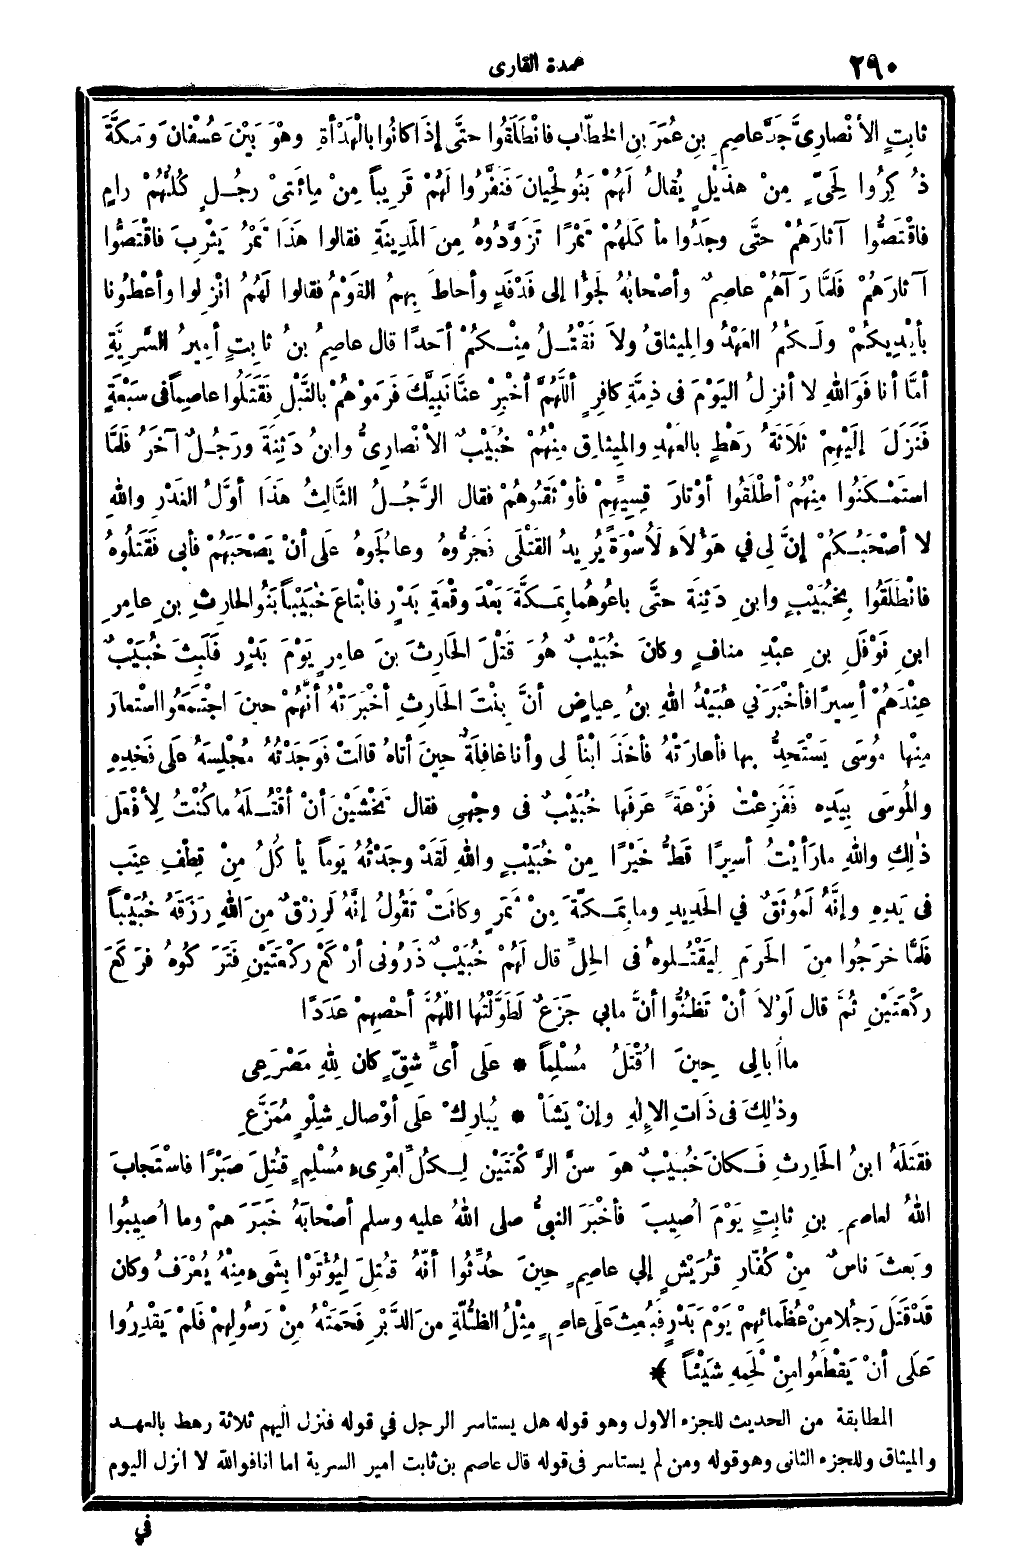 ٢٩٠
عمدة القارى
ثابِتٍ الأنْصارِىَّ جَدَّ عاصِمِ بنِ عُمَرَ بنِ الخطَّابِ فانْطَلَقُوا حتَّى إذَا كانُوا بالْهَدْأةِ وهْوَ بَيْنَ عُسْفانَ ومَكَّةَ
ذُكِرُوا لِحَىٍّ مِنْ هذَيْلٍ يُقالُ لَهُمْ بَنُو لِحْيانَ فَنَفَّرُوا لَهُمْ قَرِيباً مِنْ مِائَتىْ رجُلٍ كُلُّهُمْ رامٍ
فاقْتَصُّوا آثارَهُمْ حتَّى وجَدُوا مأكَلَهُمْ تَمْرًا تَزَوَّدُوهُ مِنَ المَدِينَةِ فقالوا هَذَا تَمْرُ يَثْرِبَ فاقْتَصُّوا
آثارَهُمْ فَلَمَّا رَآهُمْ عاصِمٌ وأصْحابُهُ لَجَؤُا إلى فَدْفَدٍ وأحاطَ بِهِمُ القَوْمُ فقالوا لَهُمُ انْزِلوا وأعْطُونا
بأيْدِيكُمْ ولَكُمُ العَهْدُ والمِيثاقُ ولاَ نَقْتُلُ مِنْكُمْ أحَدًا قال عاصِمُ بنُ ثابِتٍ أمِيرُ السَّرِيَّةِ
أمَّا أنا فَوَاللهِ لا أنزِلُ اليَوْمَ فى ذِمَّةِ كافِرٍ أللَّهُمَّ أخْبِرْ عنَّا نَبِيَّكَ فَرَمَوْهُمْ بالنَّبْلِ فَقَتَلُوا عاصِماً فى سَبْعَةٍ
فَنَزَلَ إلَيْهِمْ ثَلاَثَةُ رَهْطٍ بالعَهْدِ والمِيثاقِ مِنْهُمْ خُبَيْبٌ الأنْصارِىُّ وابنُ دَثِنَةَ ورَجُلٌ آخَرُ فلَمَّا
اسْتَمْكَنُوا مِنْهُمْ أطْلَقُوا أوْتارَ قِسِيِّهِمْ فأوْثَقُوهُمْ فقال الرَّجُلُ الثَّالِثُ هَذَا أوَّلُ الغَدْرِ واللهِ
لا أصْحَبُكُمْ إنَّ لِى في هَؤُلاَءِ لَأُسْوَةً يُرِيدُ القَتْلَى فَجَرُّوهُ وعالَجُوهُ علَى أنْ يَصْحَبَهُمْ فأبى فَقَتَلُوهُ
فانْطَلَقُوا بِخُبَيْبٍ وابنِ دَثِنَةَ حتَّى باعُوهُما بِمَكَّةَ بَعْدَ وقْعَةِ بَدْرٍ فابْتاعَ خُبَيْباً بَنُو الحارِثِ بنِ عامِرِ
ابنِ نَوْفَلِ بنِ عبْدِ منافٍ وكانَ خُبَيْبٌ هُوَ قَتَلَ الحَارِثَ بنَ عامِرٍ يَوْمَ بَدْرٍ فَلَبِثَ خُبَيْبٌ
عِنْدَهُمْ أسِيرًا فأخْبَرَنِي عُبَيْدُ اللهِ بنُ عِياضٍ أنَّ بِنْتَ الحَارِثِ أخْبَرَتْهُ أنَّهُمْ حينَ اجْتَمَعُوا اسْتَعارَ
مِنْها مُوسَى يَسْتَحِدُّ بِها فأعارَتْهُ فأخَذَ ابْناً لِى وأنا غافِلَةٌ حِينَ أتاهُ قالَتْ فَوَجَدْتُهُ مُجْلِسَهُ علَى فَخِذِهِ
والمُوسَى بِيَدِهِ فَفَزِعْتُ فَزْعَةً عَرَفَها خُبَيْبٌ فى وجْهِى فقال تَخْشَيْنَ أنْ أقْتُلَهُ ما كُنْتُ لِأفْعَلَ
ذٰلِكِ واللهِ ما رَأيْتُ أسِيرًا قَطُّ خَيْرًا مِنْ خُبَيْبٍ واللهِ لَقَدْ وجَدْتُهُ يَوْماً يأكُلُ مِنْ قِطْفِ عِنَبٍ
فى يَدِهِ وإنَّهُ لَمُوثَقٌ في الحَدِيدِ وما بِمَكَّةَ مِنْ ثَمَرٍ وكانَتْ تَقُولُ إنَّهُ لَرِزْقٌ مِنَ اللهِ رَزَقَهُ خُبَيْباً
فلَمَّا خَرَجُوا مِنَ الحَرَمِ لِيَقْتُلوهُ فى الحِلِّ قال لَهُمْ خُبَيْبٌ ذَرُونى أرْكَعْ ركْعَتَيْنِ فَتَرَكُوهُ فرَكَعَ
ركْعَتَيْنِ ثُمَّ قال لَوْلاَ أنْ تَظُنُّوا أنَّ مابِي جَزَعٌ لَطَوَّلْتُها اللَّهُمَّ أحْصِهِمْ عَدَدًا
ما أُبالِى حِينَ أُقْتَلُ مُسْلِماً * علَى أىِّ شِقٍّ كان لِلهِ مَصْرَعِى
وذٰلِكَ فى ذَاتِ الإِلٰهِ وإنْ يَشَأْ * يُبارِكْ علَى أوْصالِ شِلْوٍ مُمَزَّعِ
فقَتَلَهُ ابنُ الحَارِثِ فَكانَ خُبَيْبٌ هوَ سنَّ الرَّكْعَتَيْنِ لِكُلِّ امْرِىءٍ مُسْلِمٍ قُتِلَ صَبْرًا فاسْتَجابَ
اللهُ لعاصِمِ بنِ ثابِتٍ يَوْمَ أُصِيبَ فأخْبَرَ النبىُّ صلى اللهُ عليه وسلم أصْحابَهُ خَبَرَهُمْ وما أُصِيبُوا
وبَعثَ ناسٌ مِنْ كُفَّارِ قُرَيْشٍ إلي عاصِمٍ حِينَ حُدِّثُوا أنَّهُ قُتِلَ لِيُؤْتَوْا بِشَىءٍ مِنْهُ يُعْرَفُ وكان
قَدْ قَتَلَ رَجُلاً مِنْ عُظَمائِهِمْ يَوْمَ بَدْرٍ فَبُعِثَ علَى عاصِمٍ مِثْلُ الظُّلَّةِ مِنَ الدَّبْرِ فَحَمَتْهُ مِنْ رَسُولِهِمْ فَلَمْ يَقْدِرُوا
عَلَى أنْ يَقْطَعُوا مِنْ لَحْمِهِ شَيْئاً ﴾
المطابقة من الحديث للجزء الاول وهو قوله هل يستاسر الرجل في قوله فنزل اليهم ثلاثة رهط بالعهد
والميثاق وللجزء الثانى وهو قوله ومن لم يستاسر فى قوله قال عاصم بن ثابت امير السرية اما انا فوالله لا انزل اليوم
في